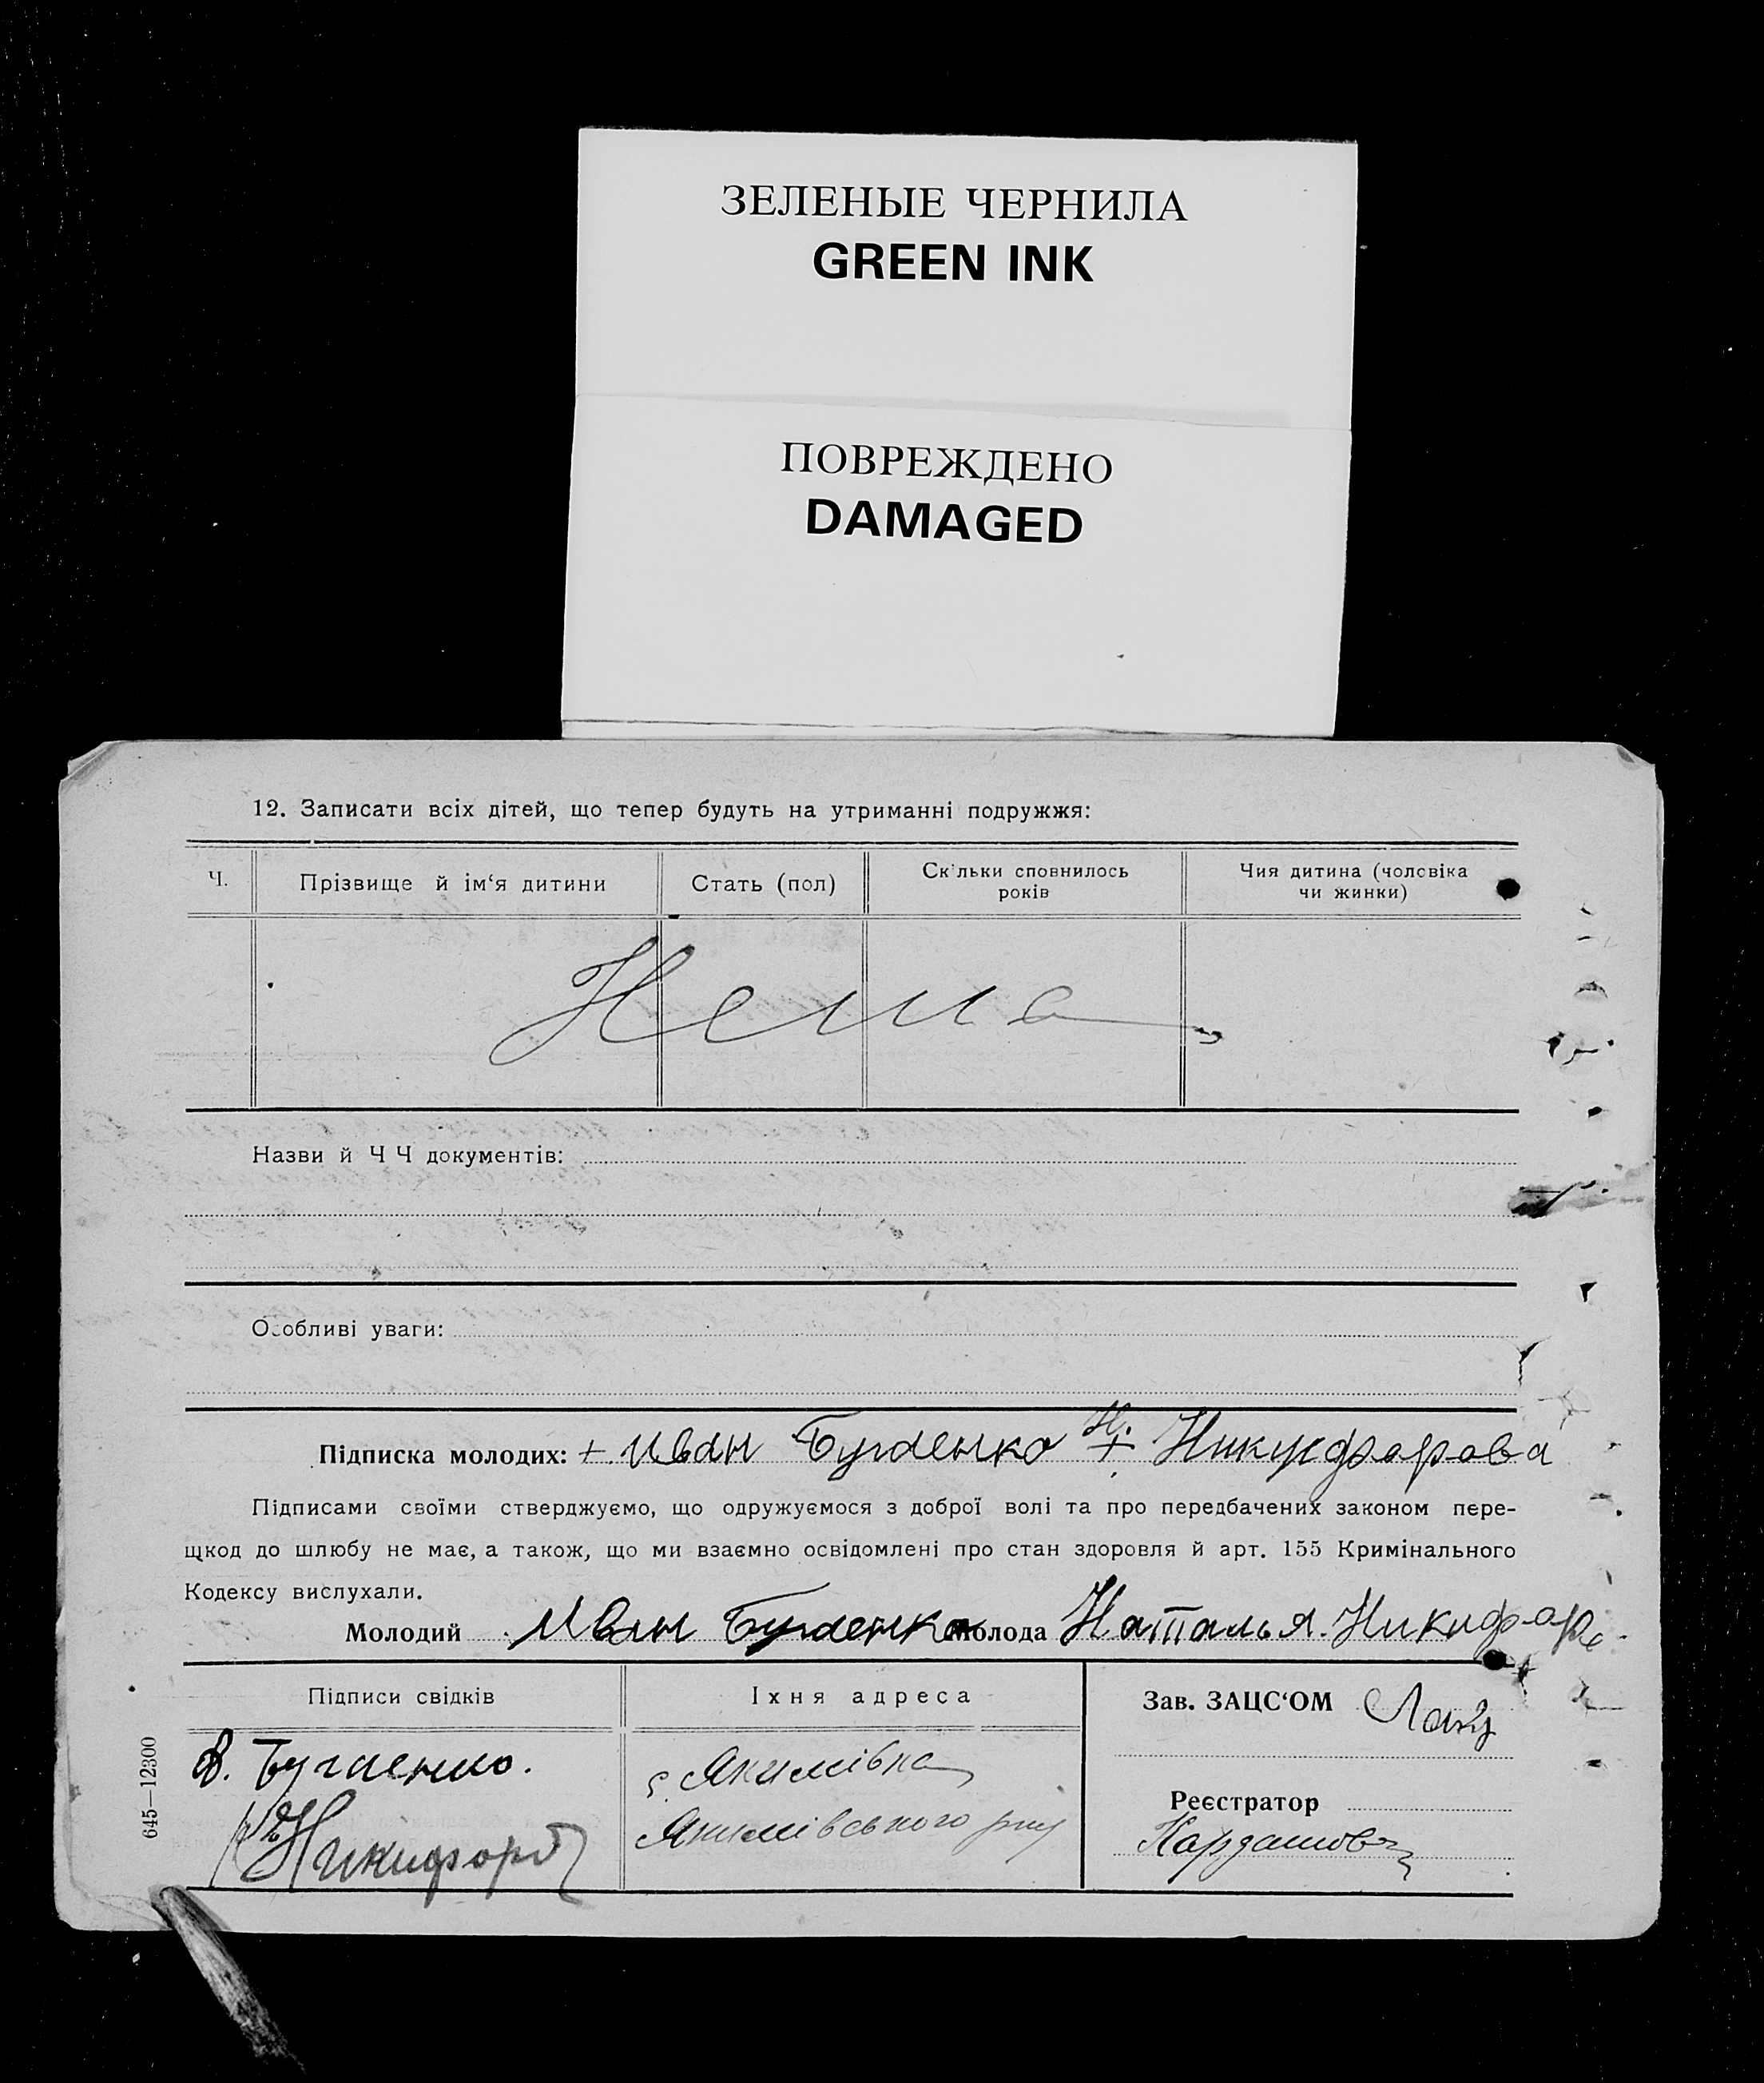 ЗЕЛЕНЫЕ ЧЕРНИЛА
GREEN INK
ПОВРЕЖДЕНО
DAMAGED
12. Записати всіх дітей, що тепер будуть на утриманні подружжя:
Ч.
Прізвище й ім‘я дитини
Стать (пол)
Ск'льки сповнилось
років
Чия дитина (чоловіка
чи жинки)
Нема
Назви й Ч Ч документів:
Особливі уваги:
Підписка молодих: + Иван Бугаенко Н. + Никифорова
Підписами своїми стверджуємо, що одружуємося з доброї волі та про передбачених законом пере-
щкод до шлюбу не має, а також, що ми взаємно освідомлені про стан здоровля й арт. 155 Кримінального
Кодексу вислухали.
Молодий Иван Бугаенко Молода Наталья. Никифор
Підписи свідків
Їхня адреса
Зав. ЗАЦС‘ОМ
Бугаенко.
с. Якимівка
Реєстратор
Никифоро
Якимівського р-ну
Кардашов
645—12300